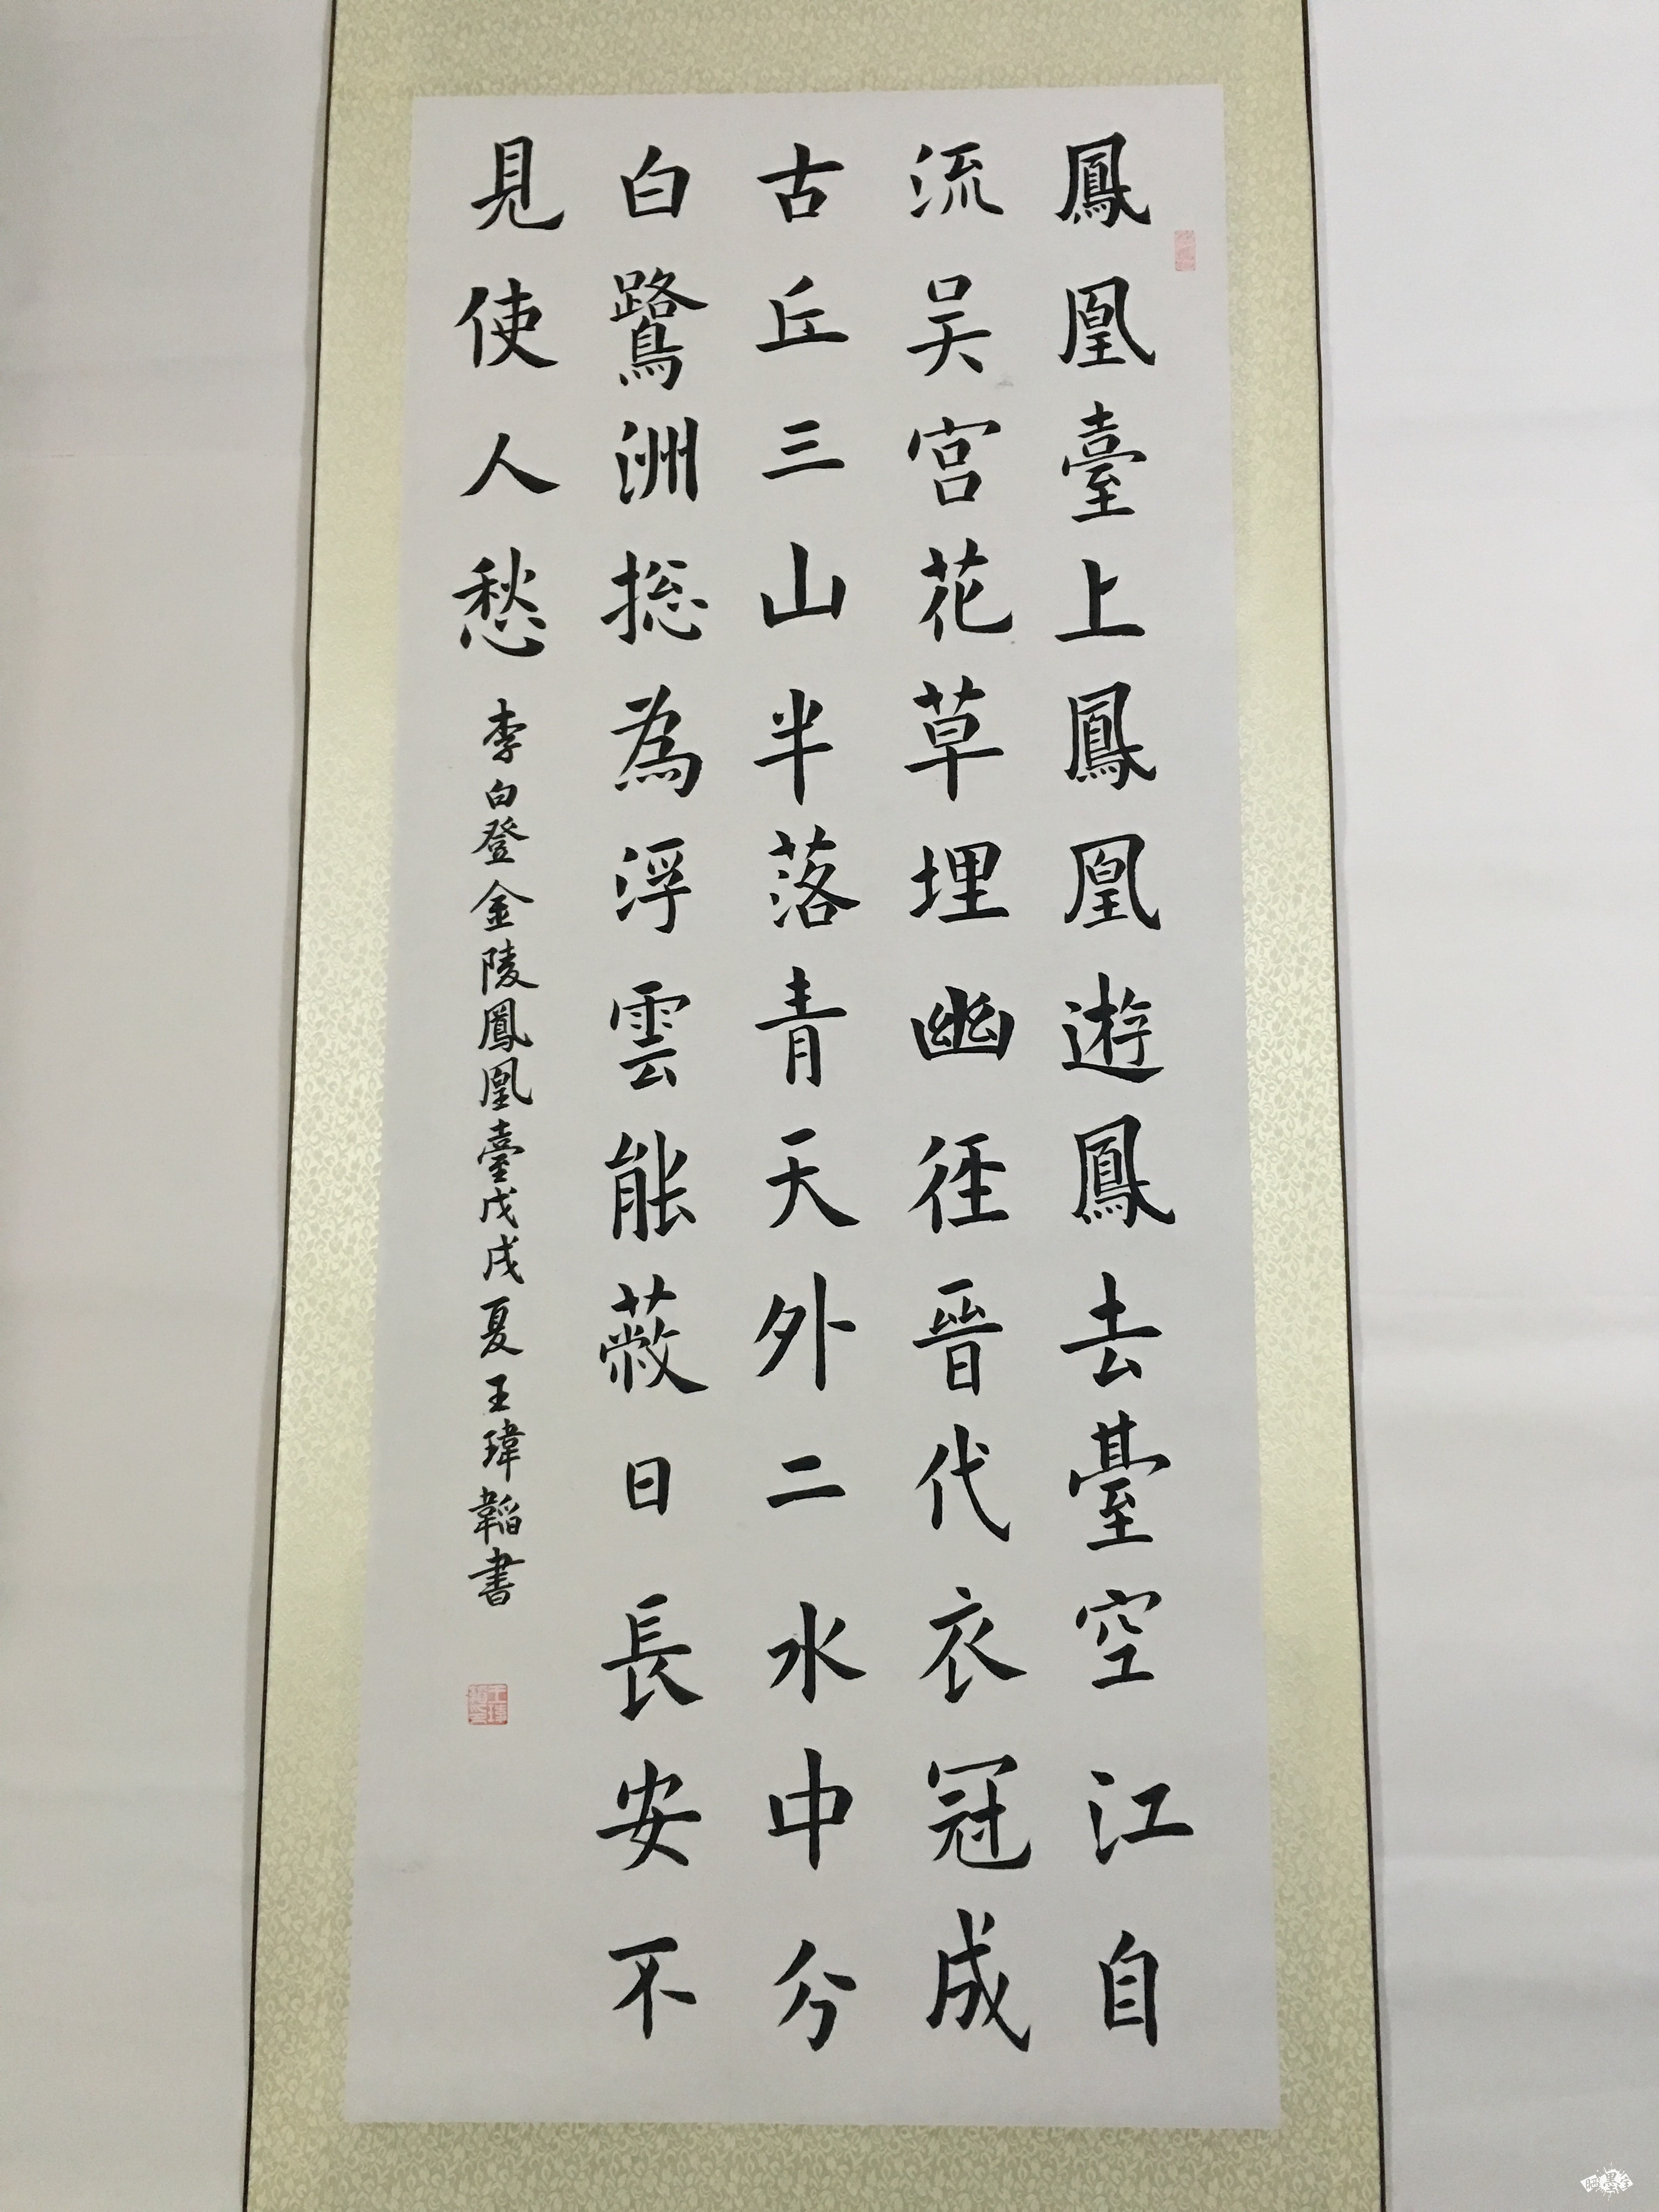 鳳凰臺上鳳凰遊鳳去臺空江自
流吳宮花草埋幽徑晉代衣冠成
古丘三山半落青天外二水中分
白鷺洲総為浮雲能蔽日長安不
見使人愁
李白登金陵鳳凰臺戊戌夏王瑋韜書